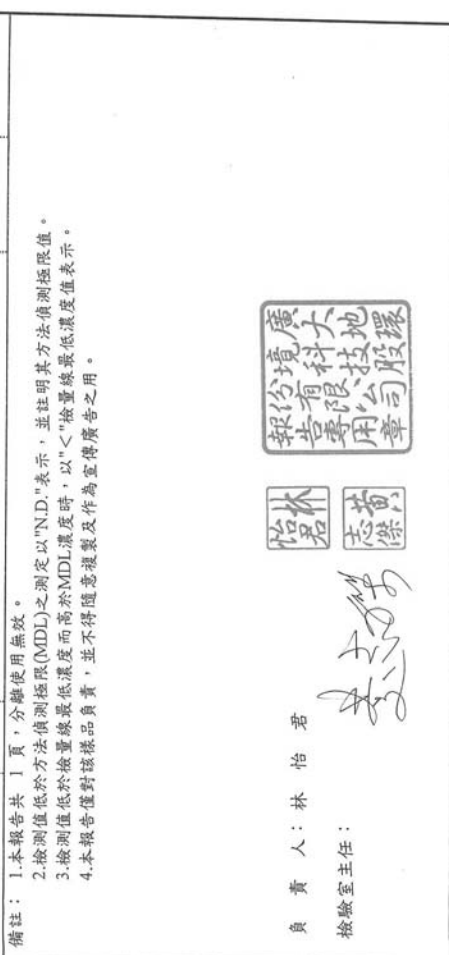 備註： 1.本報告共 1 頁，分離使用無效。
2.檢測值低於方法偵測極限(MDL)之測定以"N.D."表示，並註明其方法偵測極限值。
3.檢測值低於檢量線最低濃度而高於MDL濃度時，以"<"檢量線最低濃度值表示。
4.本報告僅對該樣品負責，並不得隨意複製及作為宣傳廣告之用。
負 責 人：林 怡 君
檢驗室主任：
林怡君
黃志傑
廣大地環境科技股份有限公司報告專用章